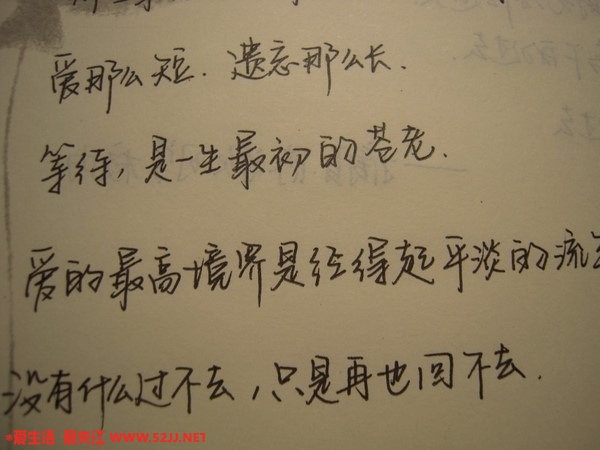 爱那么短.遗忘那么长.
等待,是一生最初的苍老.
爱的最高境界是经得起平淡的流
没有什么过不去,只是再也回不去.
•爱生活 爱靖江 WWW.52JJ.NET